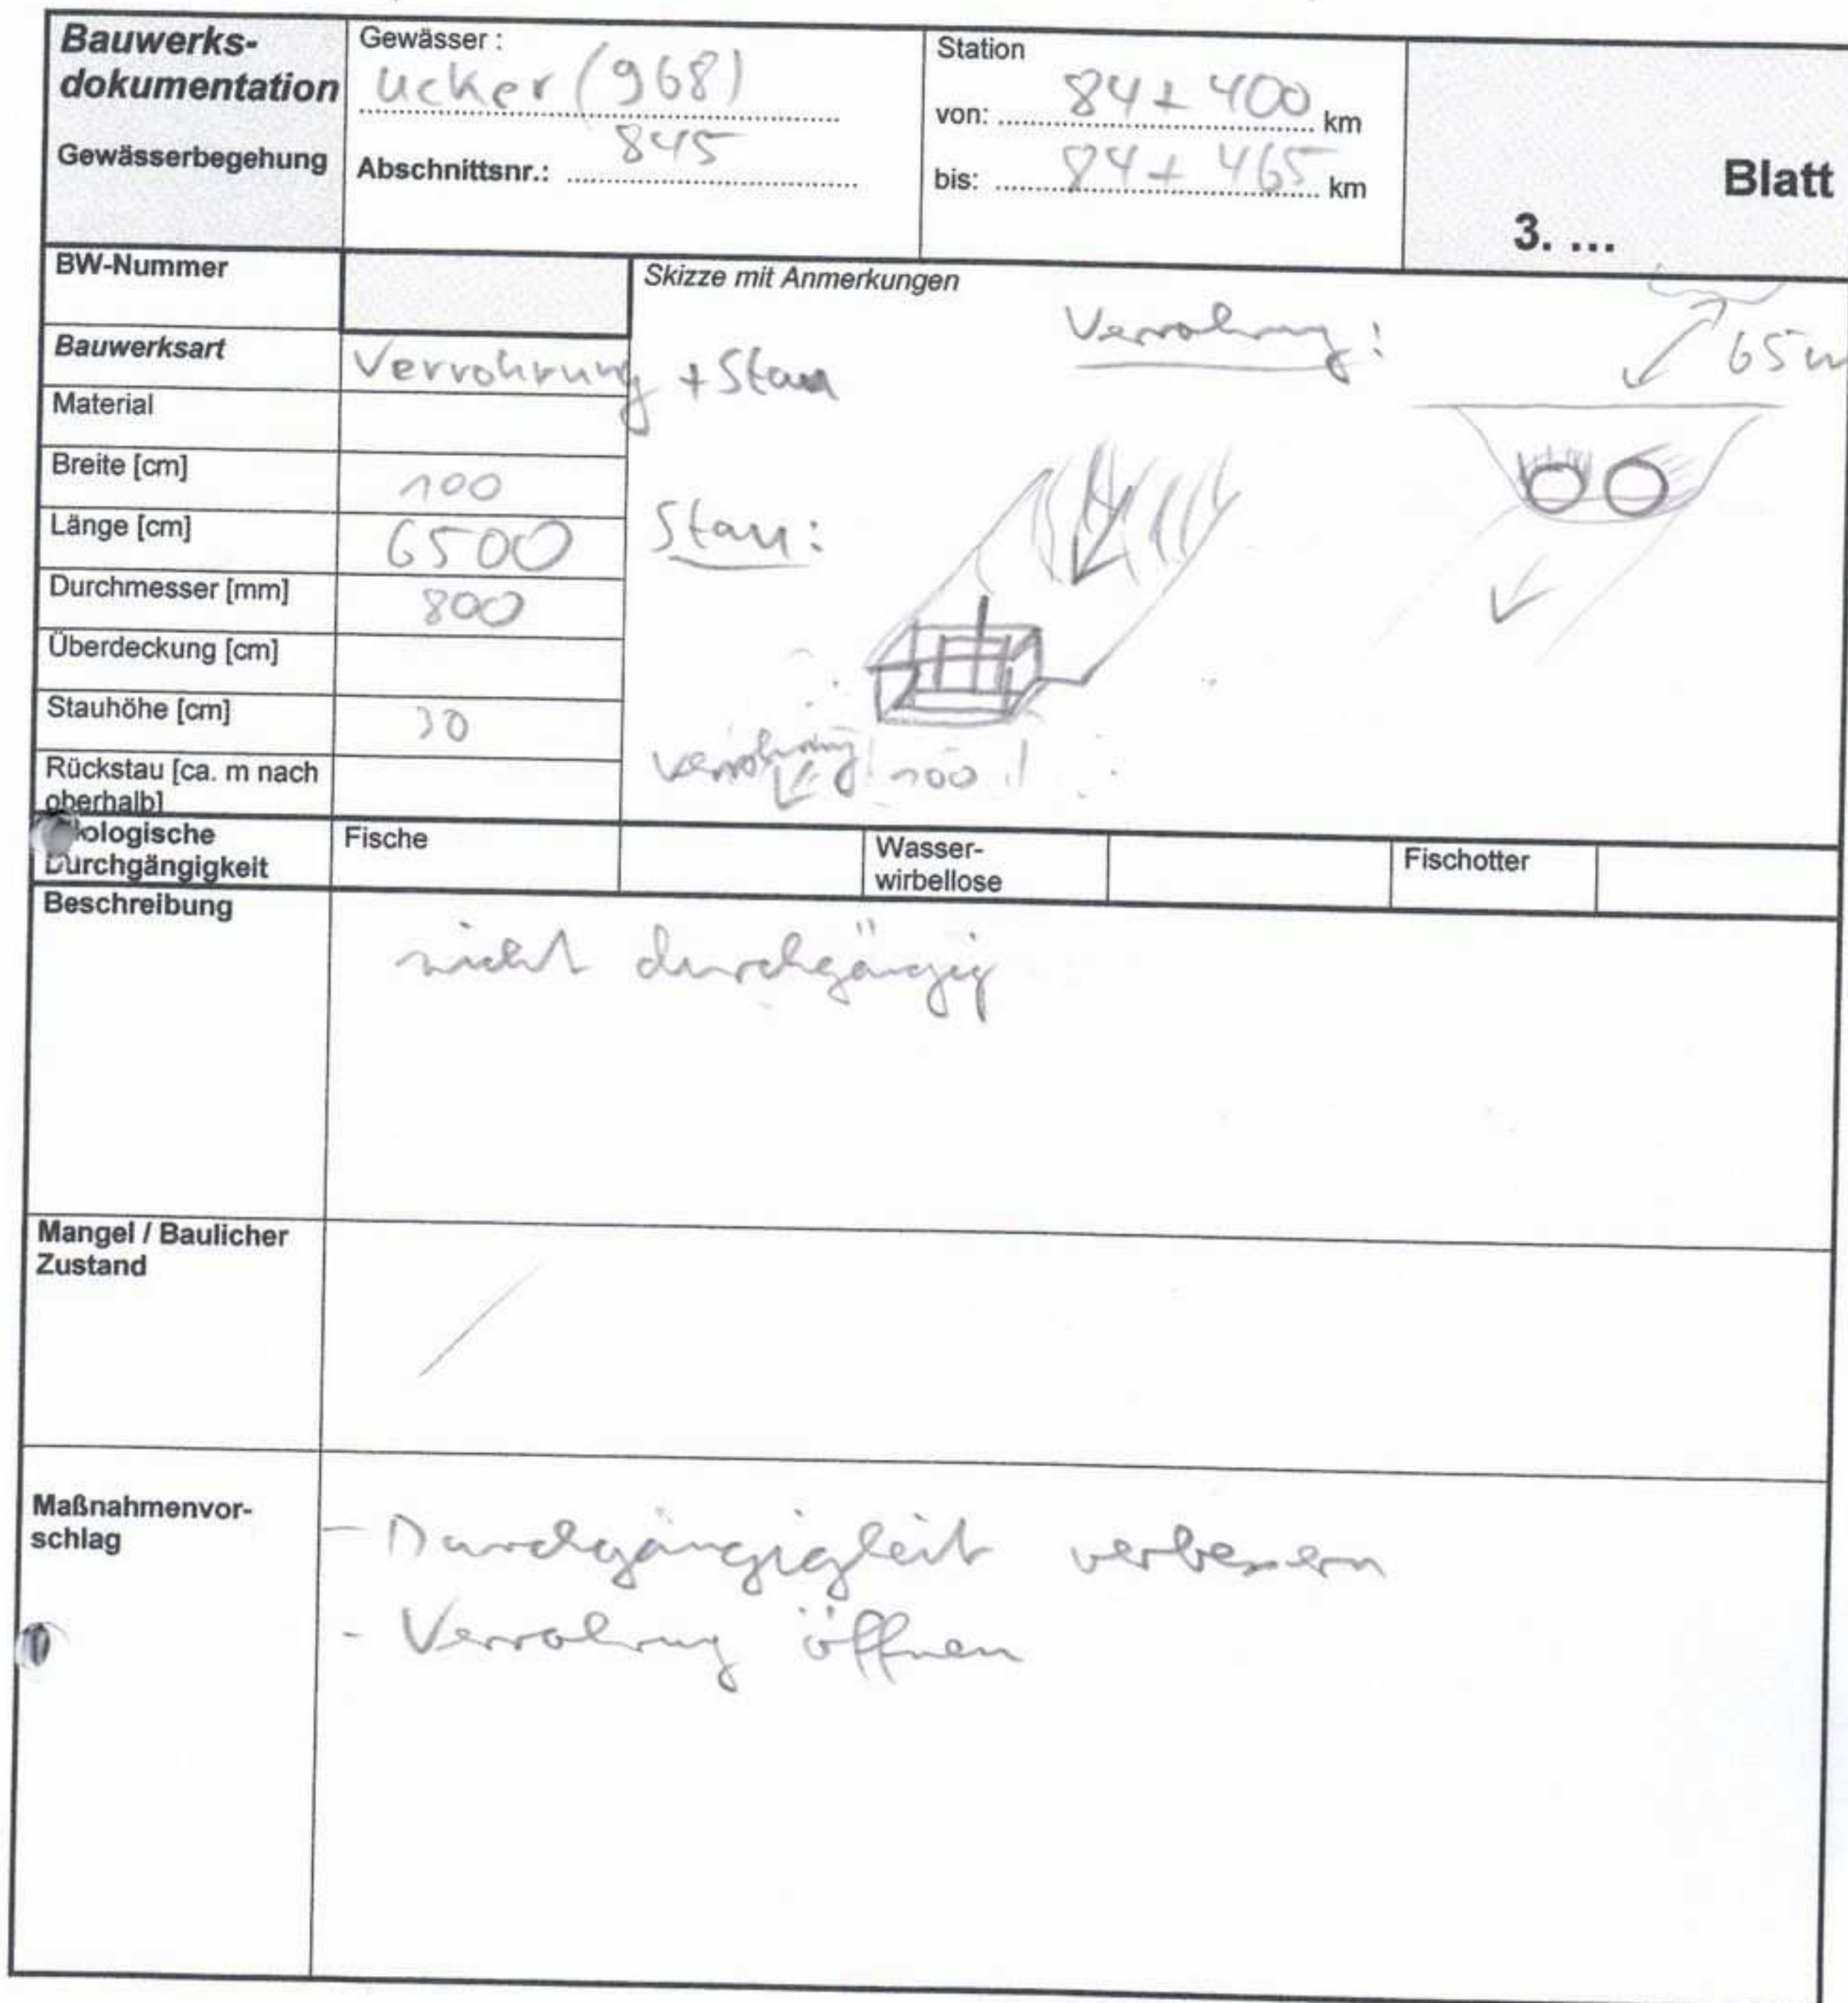 Bauwerks-
dokumentation
Gewässerbegehung
Gewässer :
Ucker (968)
Abschnittsnr.: 845
Station
von: 84+400 km
bis: 84+465 km
Blatt
3. ...
BW-Nummer
Bauwerksart Verrohrung + Stau
Material
Breite [cm] 100
Länge [cm] 6500
Durchmesser [mm] 800
Überdeckung [cm]
Stauhöhe [cm] 30
Rückstau [ca. m nach
oberhalb]
Skizze mit Anmerkungen
Verrohrung:
65m
Stau:
Verrohrung 100
ologische
Durchgängigkeit
Fische
Wasser-
wirbellose
Fischotter
Beschreibung
nicht durchgängig
Mangel / Baulicher
Zustand
/
Maßnahmenvor-
schlag
- Durchgängigkeit verbessern
- Verrohrung öffnen